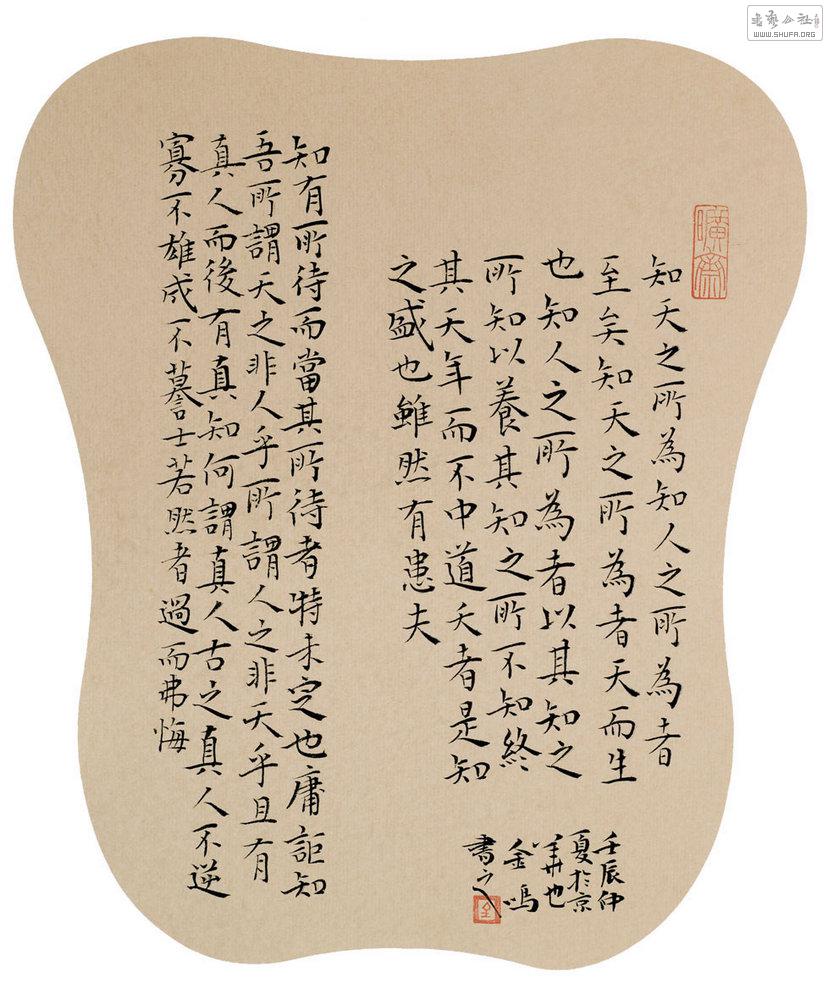 書藝公社
WWW.SHUFA.ORG
知天之所為知人之所為者
至矣知天之所為者天而生
也知人之所為者以其知之
所知以養其知之所不知終
其天年而不中道夭者是知
之盛也雖然有患夫
知有所待而當其所待者特未定也庸詎知
吾所謂天之非人乎所謂人之非天乎且有
真人而後有真知何謂真人古之真人不逆
寡不雄成不謩士若然者過而弗悔
壬辰仲
夏於京
華也
金鳴
書之